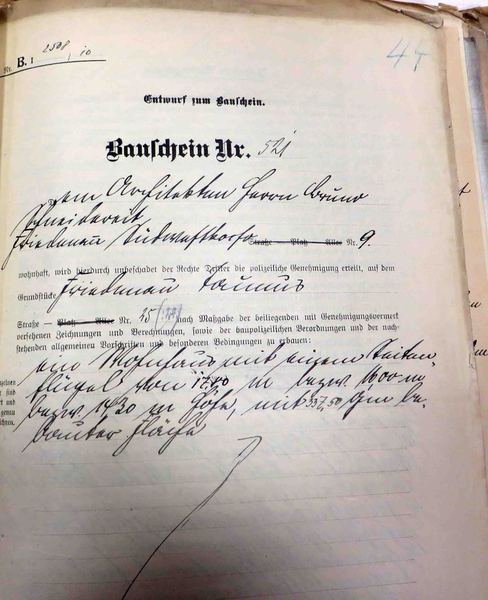 Nr. B. I 2508, 10
47
Entwurf zum Bauschein.
Bauschein Nr. 521
dem Architekten Herrn Bruno
Schneidereit
Friedenau Südwestkorso Straße – Platz – Allee Nr. 9.
wohnhaft, wird hierdurch unbeschadet der Rechte Dritter die polizeiliche Genehmigung erteilt, auf dem
Grundstücke Friedenau Taunus
Straße – Platz – Allee Nr. 15 nach Maßgabe der beiliegenden mit Genehmigungsvermerk
versehenen Zeichnungen und Berechnungen, sowie der baupolizeilichen Verordnungen und der nach-
stehenden allgemeinen Vorschriften und besonderen Bedingungen zu erbauen:
ein Wohnhaus mit einem Seiten-
flügel von 17,80 m bezw.
bezw. 14,20 m Höhe, mit 337,50 qm be-
bauter Fläche